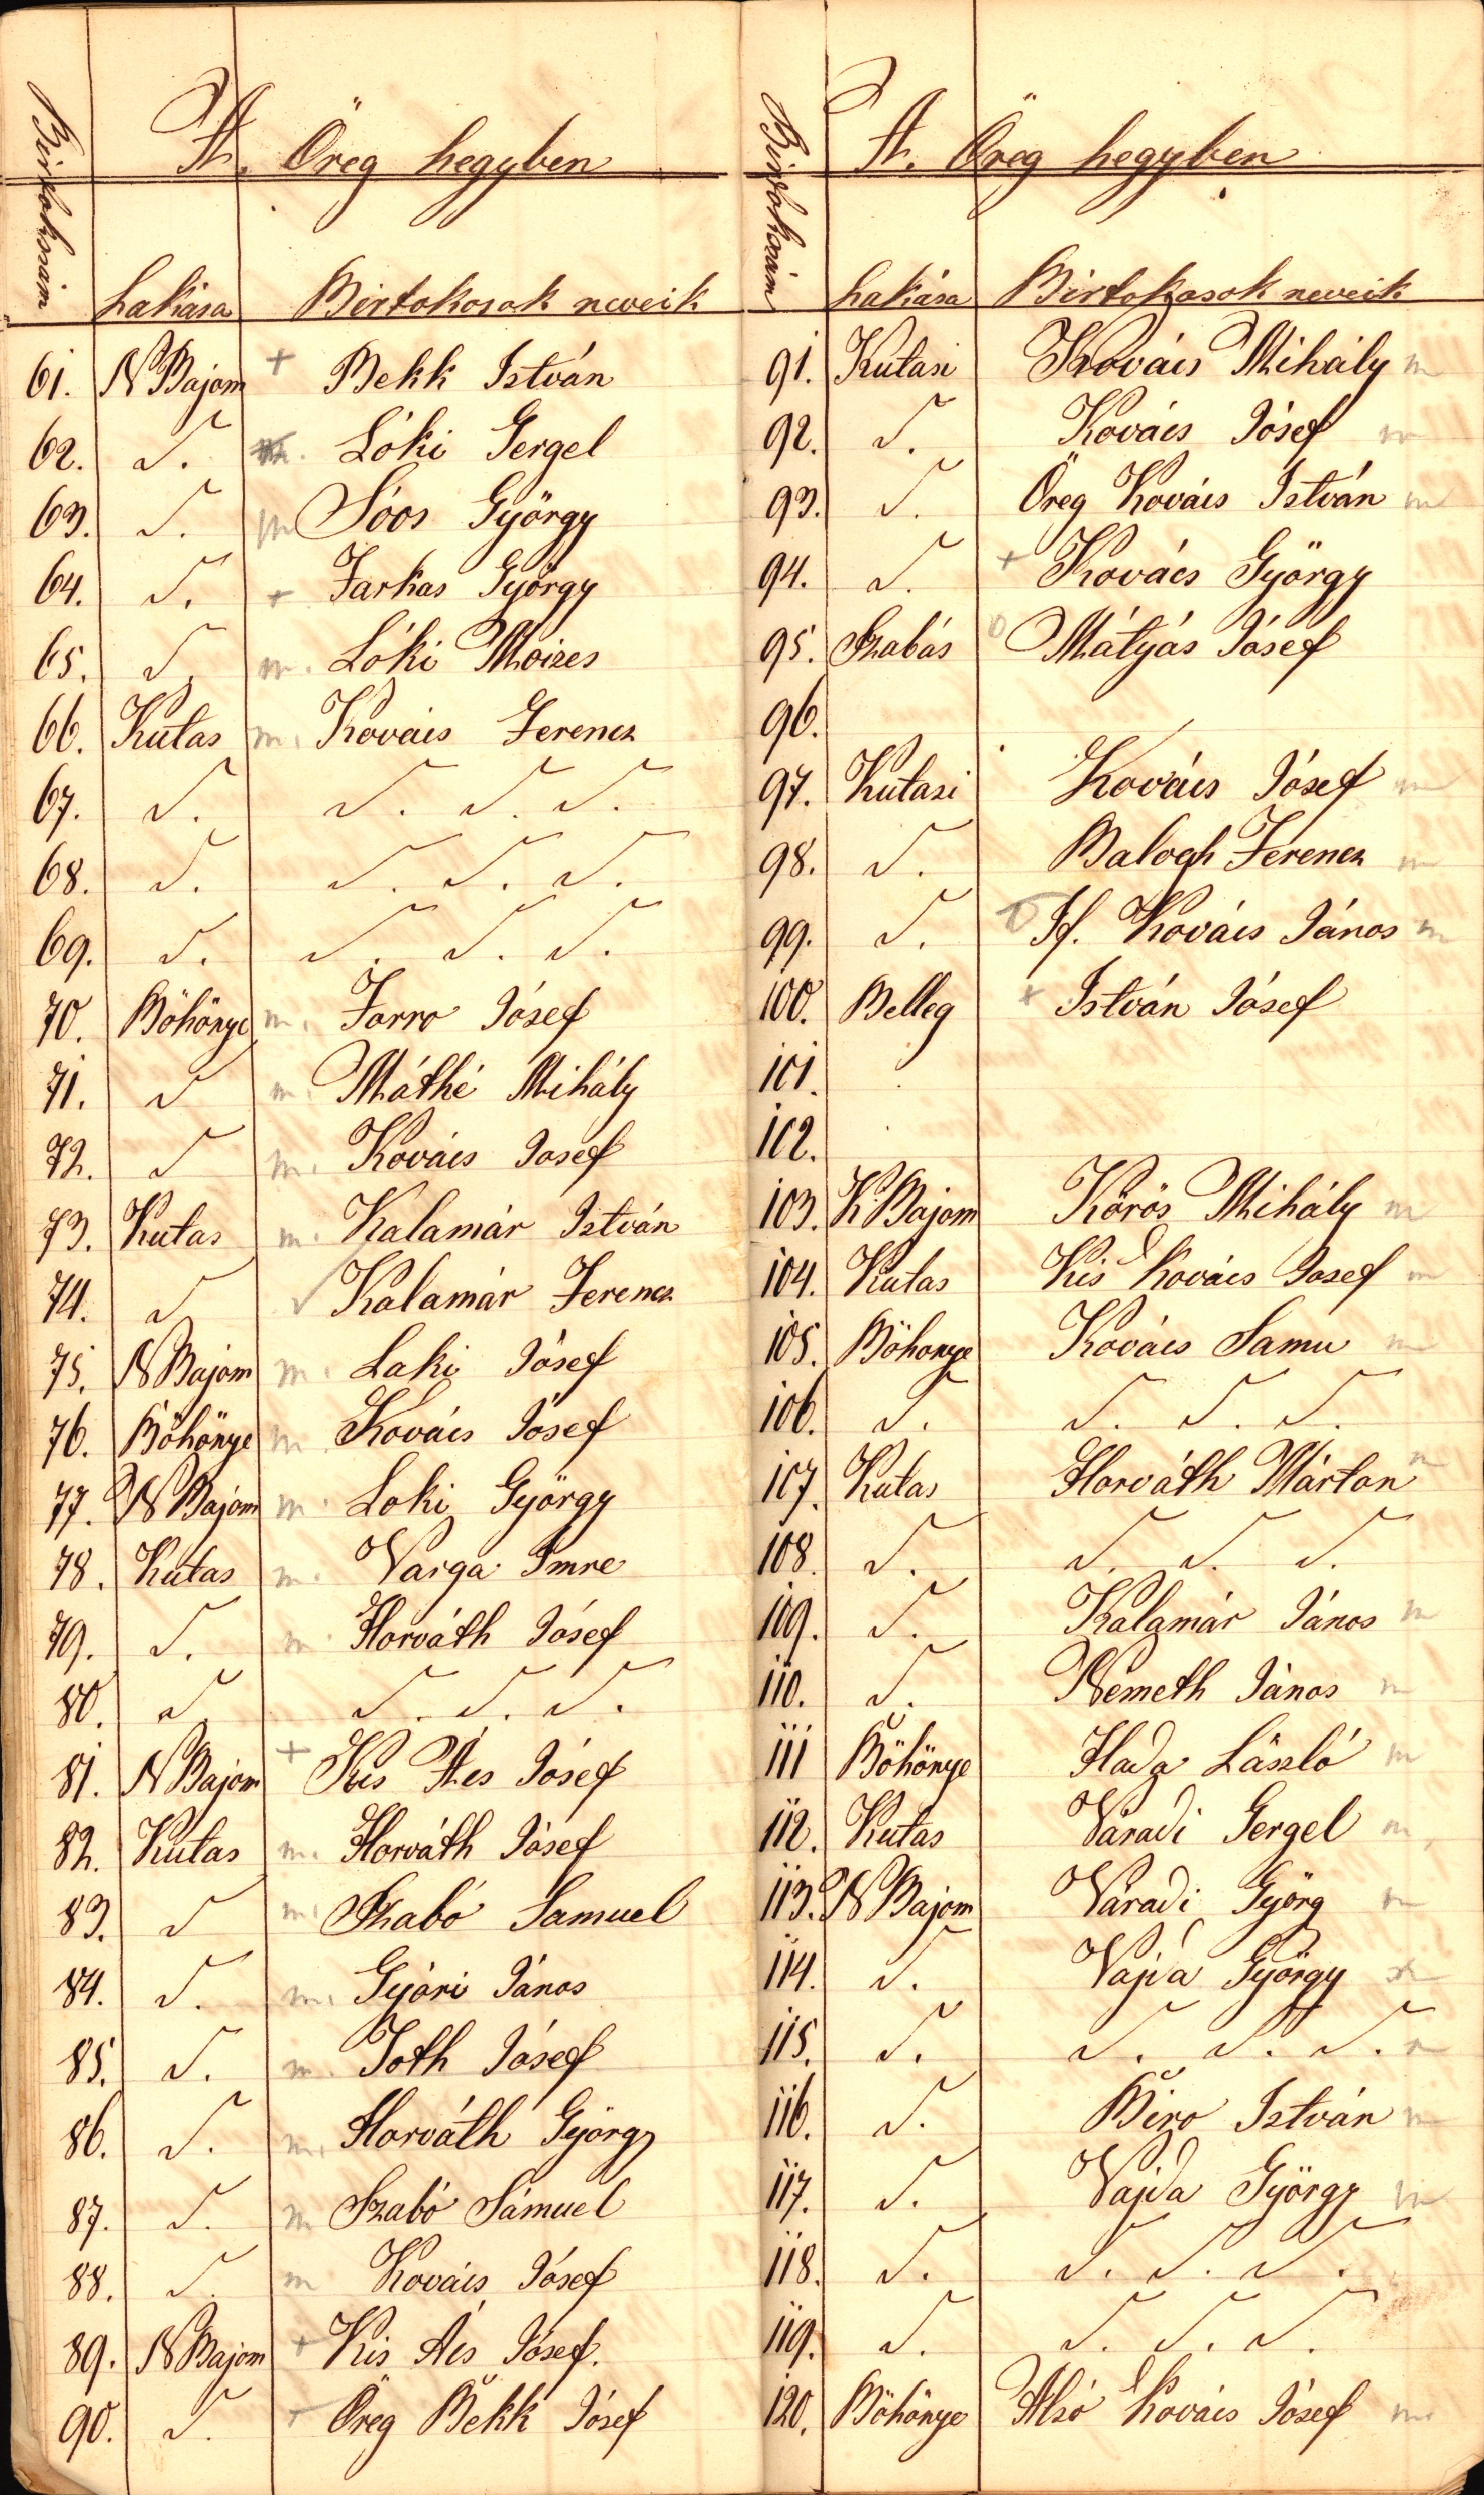 A. Öreg hegyben
Birtokszám Lakása Birtokosok neveik
61. N Bajom + Bekk István
62. S. m. Lóki Gergel
63. S. m Sóos György
64. S. + Farkas György
65. S. m. Lóki Moizes
66. Kutas m. Kovács Ferencz
67. S. S. S. S.
68. S. S. S. S.
69. S. S. S. S.
70. Böhönye m. Forro Jósef
71. S m. Máthé Mihály
72. S m. Kovács Josef
73. Kutas m. Kalamár István
74. S √ Kalamár Ferencz
75. N Bajom m. Laki Jósef
76. Böhönye m Kovács Jósef
77. N Bajom m. Loki György
78. Kutas m. Varga Imre
79. S. m. Horváth Jósef
80. S. S. S. S.
81. N Bajom + Kis Ács Jósef
82. Kutas m. Horváth Jósef
83. S m. Szabó Samuel
84. S. m. Gyóri János
85. S. m. Toth Jósef
86. S. m. Horváth György
87. S. m Szabó Sámuel
88. S. m Kovács Jósef
89. N Bajom + Kis Ács Jósef.
90. S. + Öreg Bekk Jósef
A. Öreg hegyben
Birtokszám Lakása Birtokosok neveik
91. Kutasi Kovács Mihály m
92. S. Kovács Jósef m
93. S. Öreg Kovács István m
94. S. + Kovács György
95. Szabás 0 Mátyás Jósef
96.
97. Kutasi Kovács Jósef m
98. S. Balogh Ferencz m
99. S. If. Kovács János m
100. Belleg + István Jósef
101.
102.
103. K. Bajom Körös Mihály m
104. Kutas Kis Kovács Josef m
105. Böhonye Kovács Samu m
106. S. S. S. S.
107. Kutas Horváth Márton m
108. S. S. S. S.
109. S. Kalamár János m
110. S. Németh János m
111 Böhönye Hada László m
112. Kutas Váradi Gergel m
113. N Bajom Váradi Györg m
114. S. Vajda György m
115. S. S. S. S.
116. S. Biro István m
117. S. Vajda György m
118. S. S. S. S.
119. S. S. S. S.
120. Böhönye Alsó Kovács Jósef m